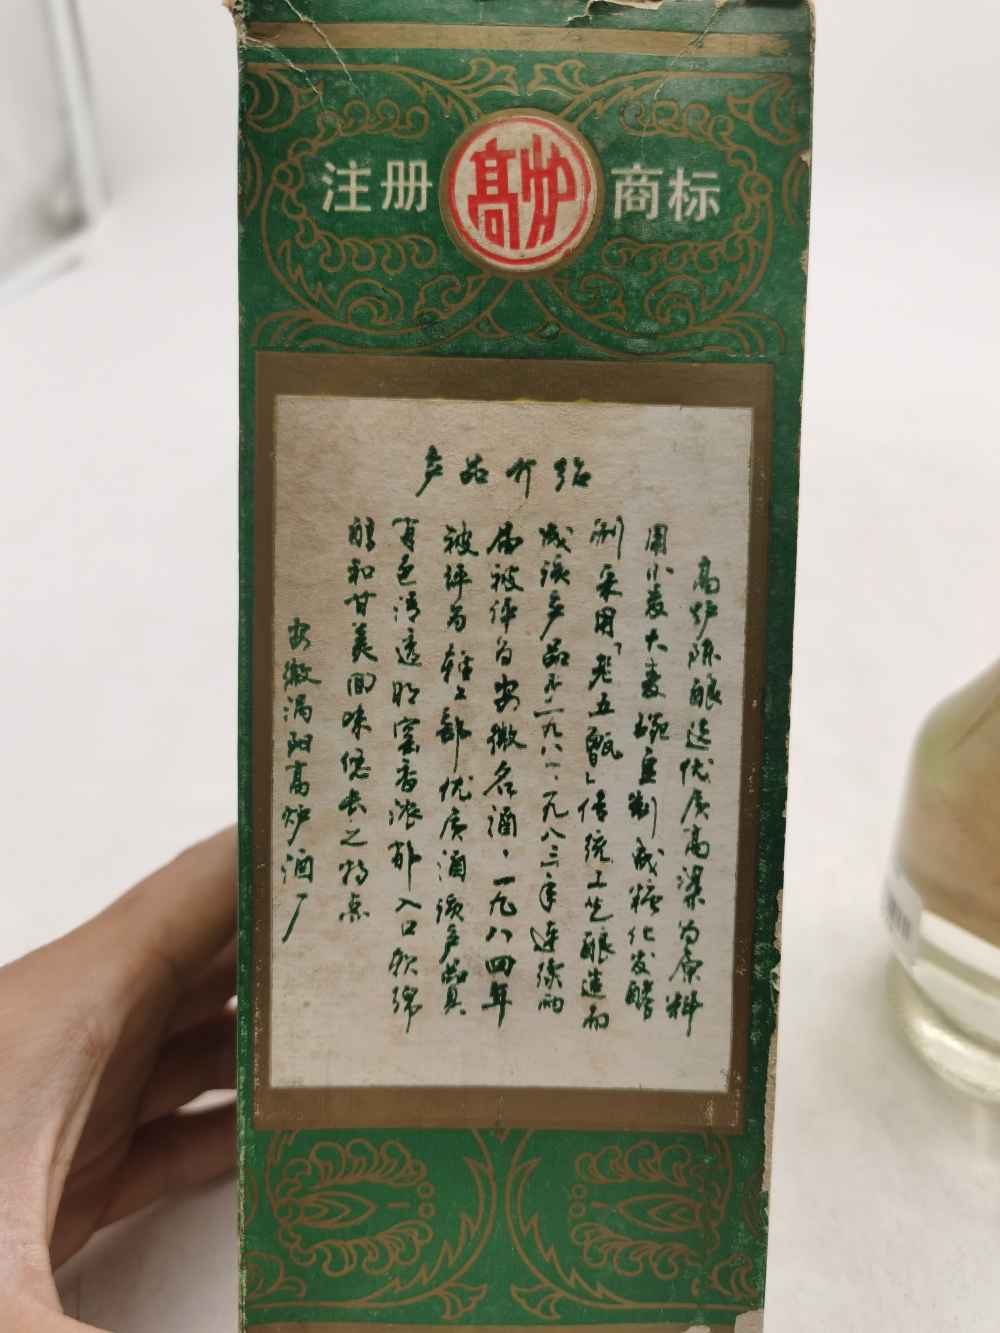 注册 高炉 商标
产品介绍
高炉陈酿选优质高粱为原料
用小麦大麦豌豆制成糖化发酵
剂采用「老五甑」传统工艺酿造而
成该产品于一九八一·一九八三年连续两
届被评为安徽名酒·一九八四年
被评为轻工部优质酒该产品具
有色清透明窖香浓郁入口软绵
醇和甘美回味悠长之特点
安徽涡阳高炉酒厂